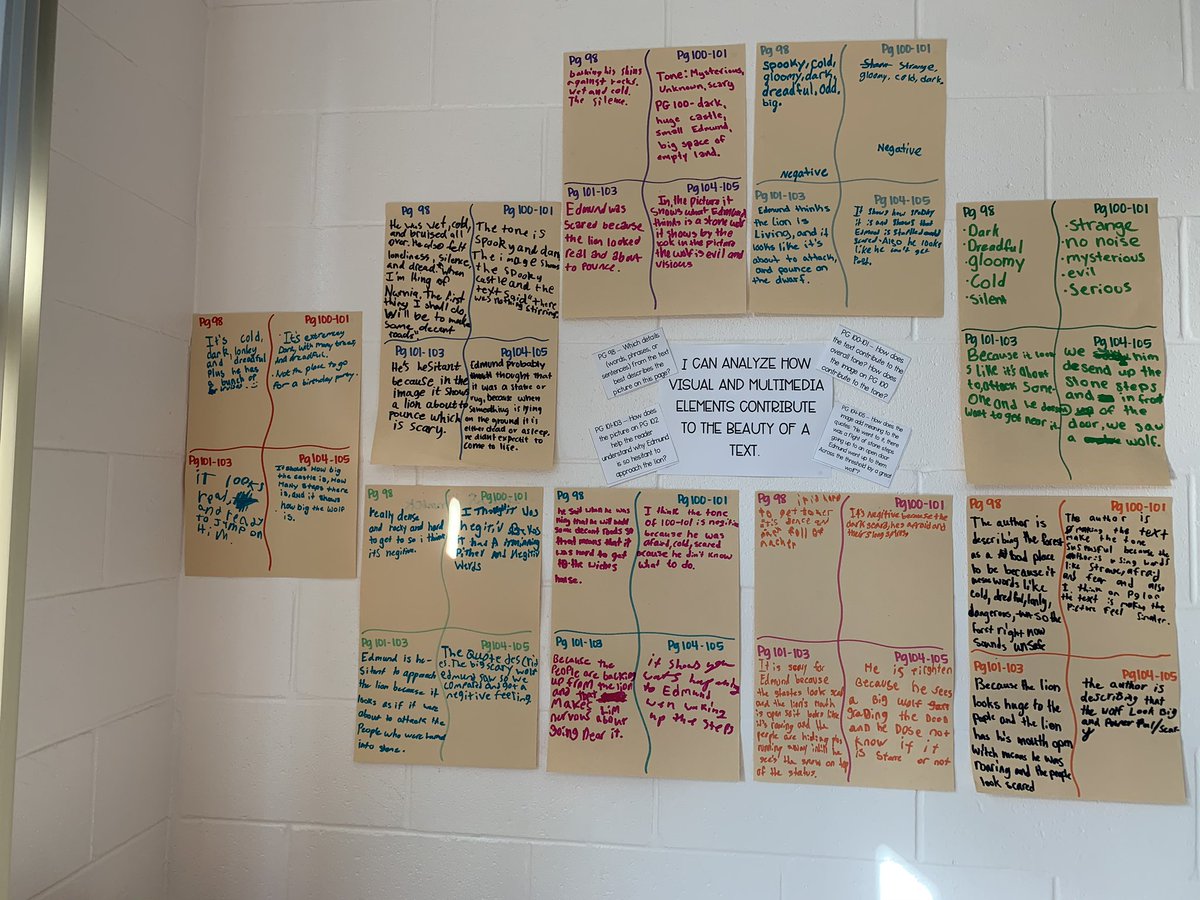 Pg 98
barking his shins
against rocks.
Wet and cold.
The silence.
Pg 100-101
Tone: Mysterious,
Unknown, scary
PG 100- dark,
huge castle,
small Edmund,
big space of
empty land.
Pg 101-103
Edmund was
Scared because
the lion looked
real and about
to pounce.
Pg 104-105
In the picture it
shows what Edmund
thinks is a stone wolf
it shows by the
look in the picture
the wolf is evil and
visious
Pg 98
Spooky, cold,
gloomy, dark,
dreadful, odd,
big.
Negative
Pg 100-101
Strange,
gloomy, cold, dark.
Negative
Pg 101-103
Edmund thinks
the lion is
Living, and it
looks like it's
about to attack,
and pounce on
the dwarf.
Pg 104-105
It shows how spooky
it is and shows that
Edmund is startled and
scared. Also he looks
like he can't get
Past.
Pg 98
He was wet, cold,
and bruised all
over. He also felt
loneliness, silence,
and dread. "when
I'm King of
Narnia, the first
thing I shall do,
will be to make
some decent
roads".
Pg 100-101
The tone is
spooky and dark
The image shows
the spooky
castle and the
text said "there
was nothing stirring.
Pg 101-103
He's hesitant
because in the
image it shows
a lion about to
pounce which
is scary.
Pg 104-105
Edmund probably
thought that
it was a statue or
rug, because when
something is lying
on the ground it is
either dead or asleep.
He didn't expect it to
come to life.
Pg 98
· Dark
· Dreadful
· gloomy
· Cold
· silent
Pg 100-101
· strange
· no noise
· mysterious
· evil
· Serious
Pg 101-103
Because it look
s like it's about
to attack some-
one and he doesn't
want to get near it.
Pg 104-105
we him
desend up the
Stone steps
and in front
of the
door, we saw
a wolf.
Pg 98
It's cold,
dark, lonley
and dreadful
Plus he has
a bunch of
Pg 100-101
· It's extremely
Dark, with many trees,
And dreadful.
Not the place to go
for a birthday party.
Pg 101-103
IT looks
real,
and ready
to jump on
it,
Pg 104-105
It shows How big
the castle is, How
Many steps there
is, and it shows
how big the wolf
is.
PG 98 – Which details
(words, phrases, or
sentences) from the text
best describes the
picture on this page?
I CAN ANALYZE HOW
VISUAL AND MULTIMEDIA
ELEMENTS CONTRIBUTE
TO THE BEAUTY OF A
TEXT.
PG 100-101 – How does
the text contribute to the
overall tone? How does
the image on PG 100
contribute to the tone?
PG 101-103 – How does
the picture on PG 102
help the reader
understand why Edmund
is so hesitant to
approach the lion?
PG 104-105 – How does the
image add meaning to the
quote: "He went to it, there
was a flight of stone steps
going up to an open door.
Edmund went up to them
Across the threshold lay a great
wolf"?
Pg 98
Really dense
and rocky and hard
to get to so i think
it's negitive.
Pg 100-101
I Thought it was
Negitif
Words
Pg 101-103
Edmund is he-
sitant to approach
the lion because it
looks as if it were
about to attack the
People who were turned
into stone.
Pg 104-105
The Quote describ
es. The big scary wolf
edmund saw so we
compared and got a
negitive feeling
Pg 98
he said when he was
king that he will build
some decent roads so
that means that it
was hard to get
to the wiches
house.
Pg 100-101
I think the tone
of 100-101 is negitive
because he was
afraid, cold, scared
because he didn't know
what to do.
Pg 101-103
Because the
People are backing
up from the lion
and that
Makes him
nurvous about
going near it.
Pg 104-105
it shows you
wat's happening
to Edmund
wen walking
up the steps
Pg 98
it is hard
to get to
Pg 100-101
It's negitive because the
dark scard, hes afraid and
Pg 101-103
It is scary for
Edmund because
the statues look scard
and the lion's mouth
is open so it looks like
it's roaring and the
people are hiding plus
running away until he
see's the snow on top
of the status.
Pg 104-105
He is frighten
Because he sees
a Big wolf
grading the Door
and he Dose not
know if it
is Stone or not
Pg 98
The author is
describing the forest
as a bad place
to be because it
uses words like
cold, dredful, lonly,
dangerous, so the
forst right now
sounds unsafe
Pg 100-101
The author is
the text
make the tone
because the
author is using words
like strange, afraid
and fear and also
I think on Pg 100
the text is making the
Picture Feel Smaler.
Pg 101-103
Because the lion
looks huge to the
people and the lion
has his mouth open
witch means he was
roaring and the people
look scared
Pg 104-105
the author is
describing that
the wolf Look Big
and Power ful/scar
y